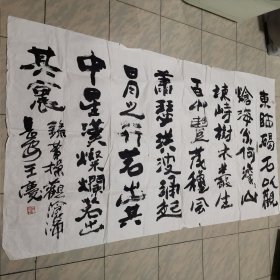 東臨碣石以觀
滄海水何澹山
竦峙樹木叢生
百草豐茂秋風
蕭瑟洪波涌起
日月之行若出其
中星漢燦爛若出
其裏
錄曹操觀滄海
王慶